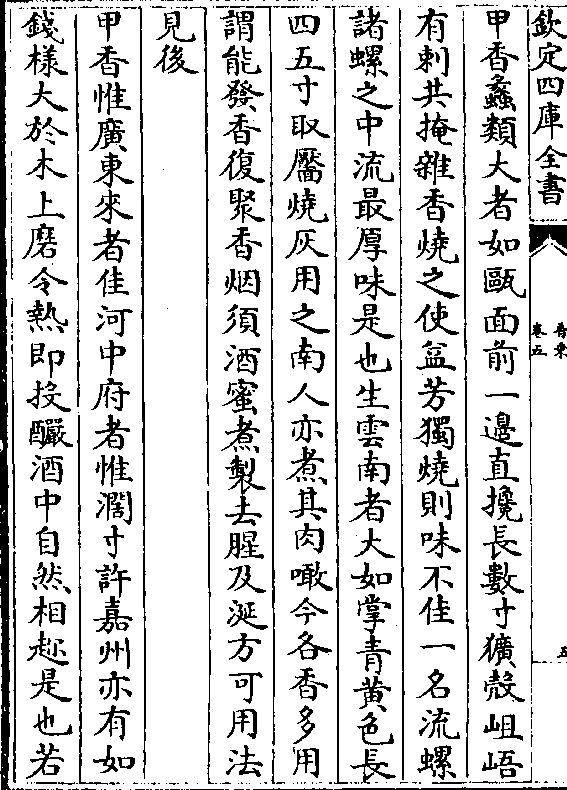 欽定四庫全書
香乘
卷五
五
甲香蠡類大者如甌面前一邉直攙長數寸獷殻岨峿
有刺其掩雜香燒之使益芳獨燒則味不佳一名流螺
諸螺之中流最厚味是也生雲南者大如掌青黄色長
四五寸取靨燒灰用之南人亦煮其肉噉今各香多用
謂能發香復聚香烟須酒蜜煮製去腥及涎方可用法
見後
甲香惟廣東來者佳河中府者惟濶寸許嘉州亦有如
錢様大於木上磨令熱即投釅酒中自然相趂是也若